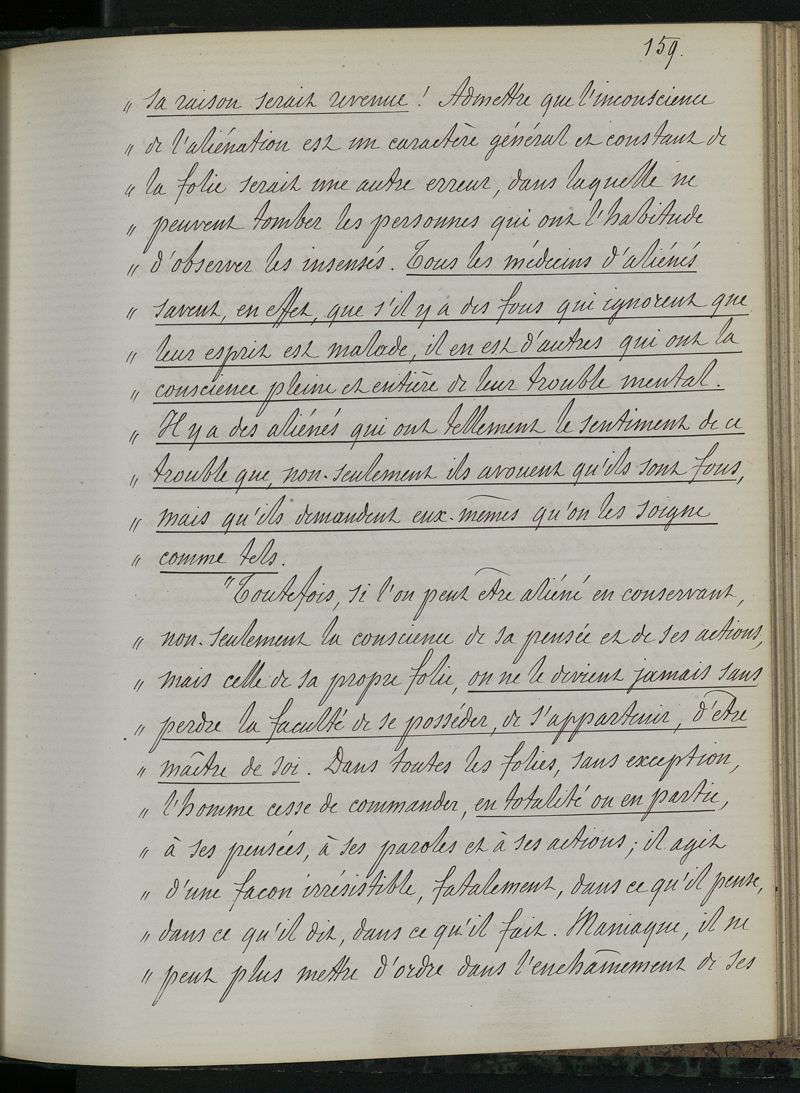 159.
" sa raison serait revenue ! Admettre que l'inconscience
" de l'aliénation est un caractère général et constant de
" la folie serait une autre erreur, dans laquelle ne
" peuvent tomber les personnes qui ont l'habitude
" d'observer les insensés. Tous les médecins d'aliénés
" savent, en effet, que s'il y a des fous qui ignorent que
" leur esprit est malade, il en est d'autres qui ont la
" conscience pleine et entière de leur trouble mental.
" Il y a des aliénés qui ont tellement le sentiment de ce
" trouble que, non-seulement ils avouent qu'ils sont fous,
" mais qu'ils demandent eux-mêmes qu'on les soigne
" comme tels.
" Toutefois, si l'on peut être aliéné en conservant,
" non-seulement la conscience de sa pensée et de ses actions,
" mais celle de sa propre folie, on ne le devient jamais sans
" perdre la faculté de se posséder, de s'appartenir, d'être
" maître de soi. Dans toutes les folies, sans exception,
" l'homme cesse de commander, en totalité ou en partie,
" à ses pensées, à ses paroles et à ses actions ; il agit
" d'une façon irrésistible, fatalement, dans ce qu'il pense,
" dans ce qu'il dit, dans ce qu'il fait. Maniaque, il ne
" peut plus mettre d'ordre dans l'enchaînement de ses